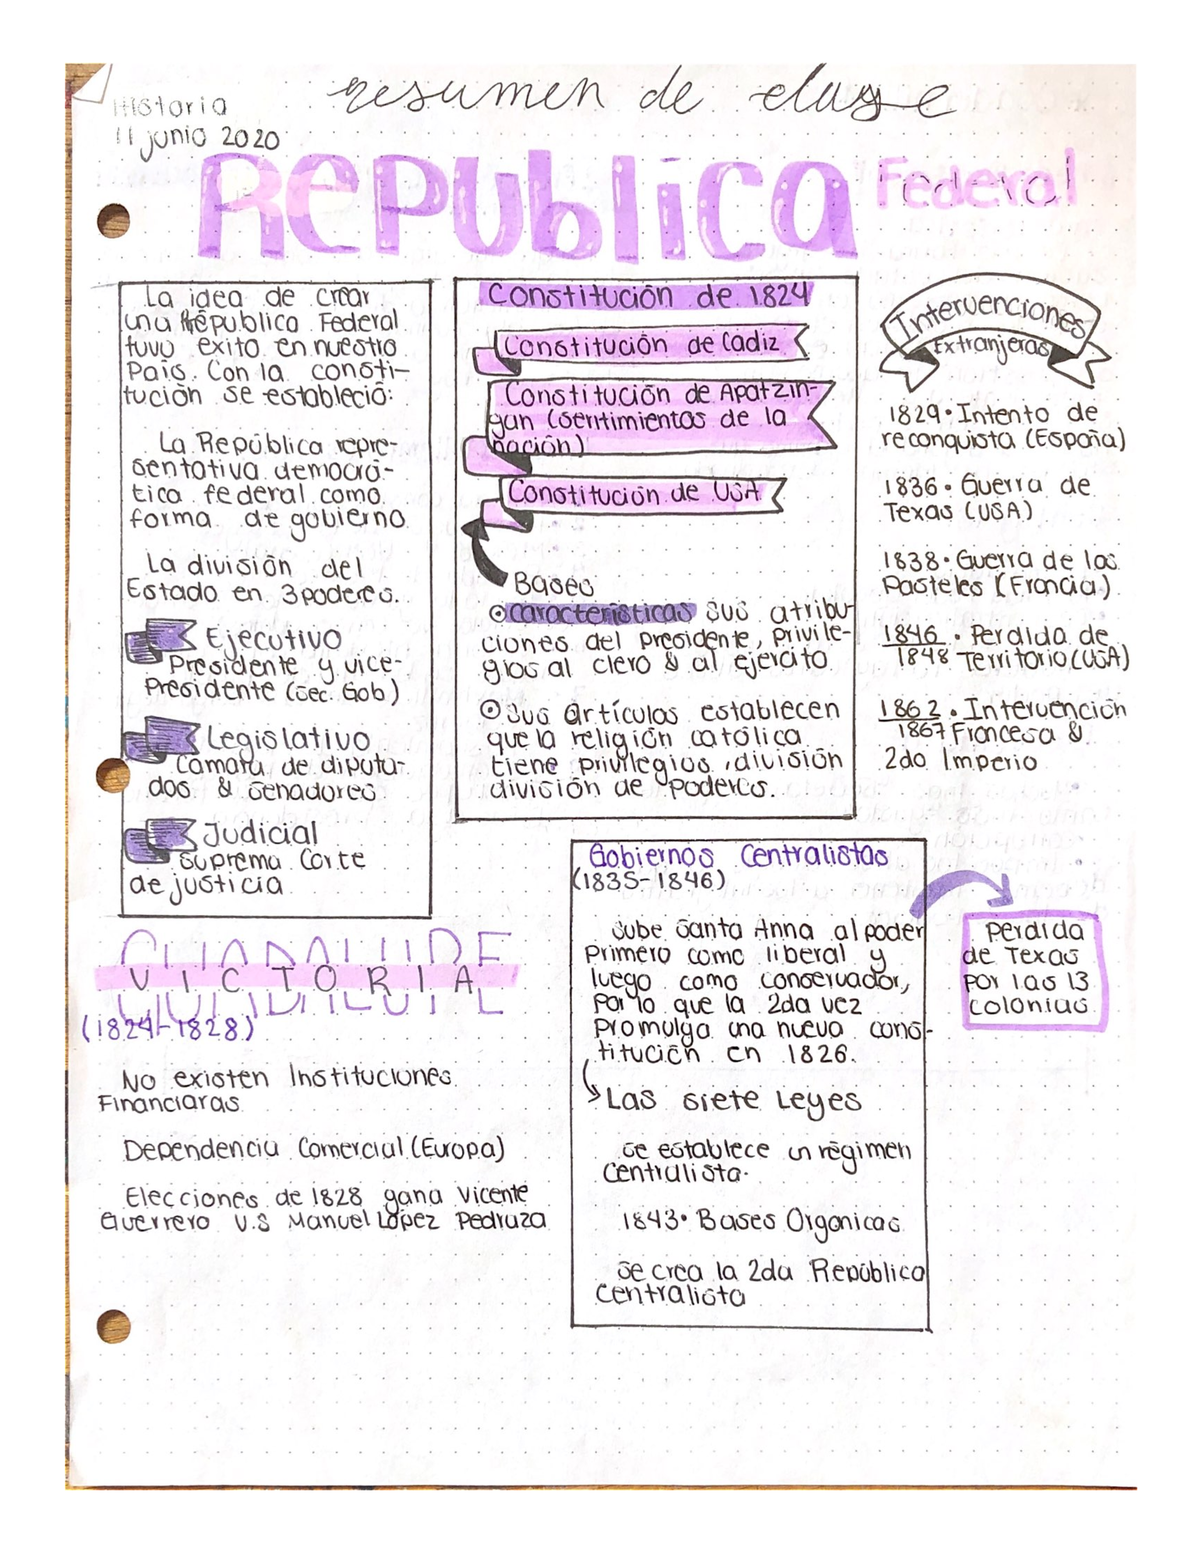 Historia
11 junio 2020
resumen de clase
República Federal
La idea de crear
una República Federal
tuvo exito en nuestro
País. Con la consti-
tución se estableció:
La República repre-
sentativa democrá-
tica federal como
forma de gobierno
La división del
Estado en 3 poderes.
Ejecutivo
Presidente y vice-
Presidente (Sec. Gob)
Legislativo
Cámara de diputa-
dos & senadores
Judicial
Suprema Corte
de justicia
Constitución de 1824
Constitución de Cadiz
Constitución de Apatzin-
gan (sentimientos de la
nación)
Constitución de USA
Bases
características sus atribu
ciones del presidente, privile-
gios al clero & al ejercito
Sus artículos establecen
que la religión católica
tiene privilegios, división
división de poderes.
Intervenciones
Extranjeras
1829• Intento de
reconquista (España)
1836• Guerra de
Texas (USA)
1838• Guerra de los
Pasteles (Francia)
1846 • Perdida de
1848 Territorio (USA)
1862 • Intervención
1867 Francesa &
2do Imperio
GUADALUPE
VICTORIA
(1824-1828)
No existen Instituciones
Financiaras
Dependencia Comercial (Europa)
Elecciones de 1828 gana Vicente
Guerrero V.S Manuel López Pedraza
Gobiernos Centralistas
(1835-1846)
Sube Santa Anna al poder
Primero como liberal y
luego como conservador,
por lo que la 2da vez
promulga una nueva cons-
titución en 1826.
Las siete Leyes
Se establece un régimen
centralista.
1843• Bases Organicas
Se crea la 2da República
centralista
Perdida
de Texas
por las 13
colonias